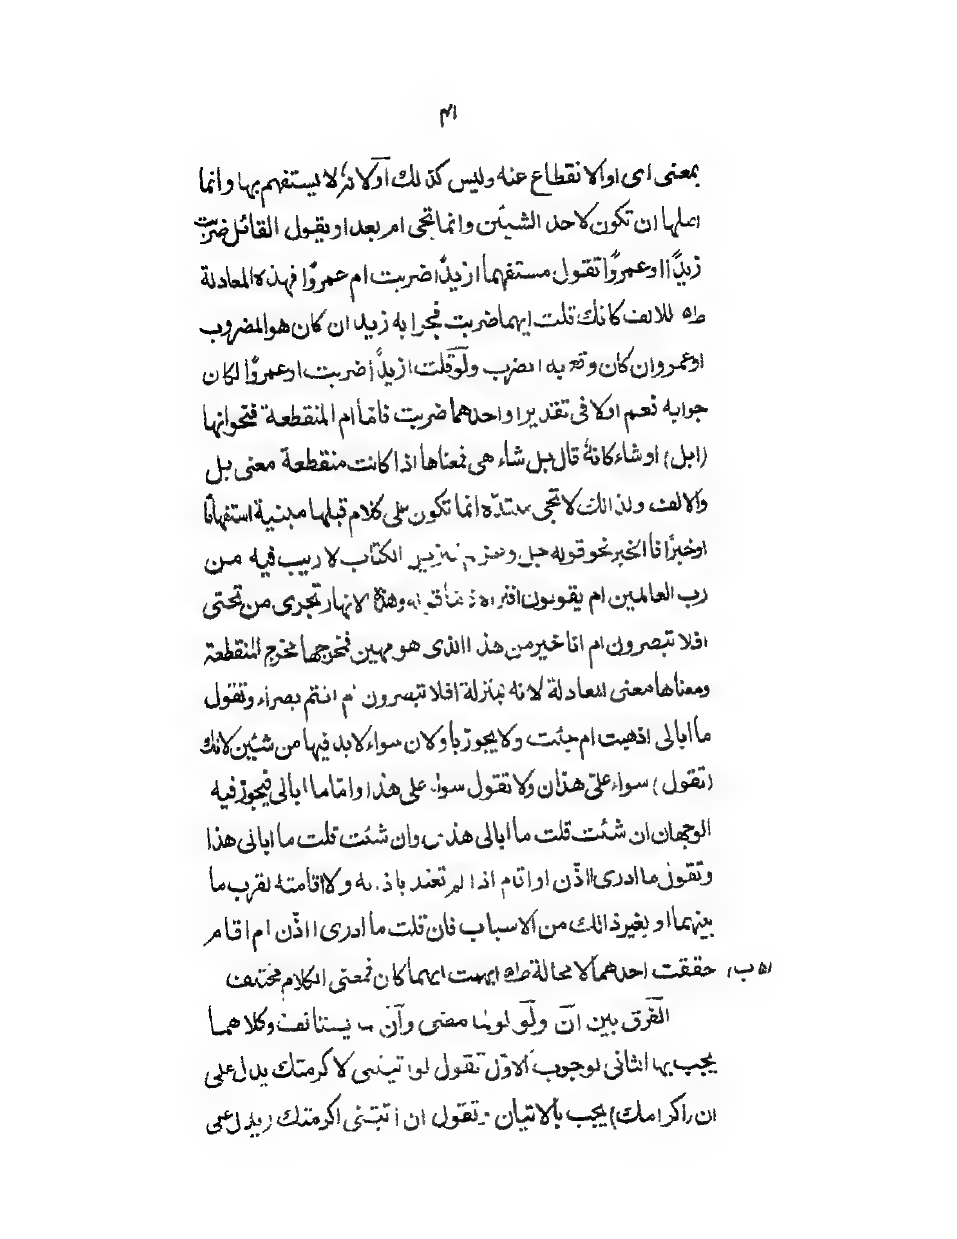 ٣١
بمعنى اى او الانقطاع عنه وليس كذلك أو لانه لا يستفهم بها وانما
اصلها ان تكون لاحد الشيئين وانما تجى ام بعد او يقول القائل ضربت
زيدًا او عمروًا تقول مستفهما ازيدًا ضربت ام عمروًا فهذه المعادلة
للالف كانك قلت ايهما ضربت فجوابه زيد ان كان هو المضروب
او عمر وان كان وقع به الضرب ولو قلت ازيدًا ضربت او عمروًا لكان
جوابه نعم او لا فى تقدير ا واحدهما ضربت فاما ام المنقطعة فنحو انها
(ابل) او شاء كانه قال بل شاء هى فمعناها اذا كانت منقطعة معنى بل
والالف ولذالك لا تجى مبتدءه انما تكون على كلام قبلها مبنية استفهامًا
او خبرًا فا الخبر نحو قوله جل وعز تنزيل الكتاب لا ريب فيه من
رب العالمين ام يقولون افتراه وهذه الانهار تجرى من تحتى
افلا تبصرون ام انا خير من هذا الذى هو مهين فمخرجها مخرج المنقطعة
ومعناها معنى المعادلة لانه بمنزلة افلا تبصرون ام انتم بصراء وتقول
ما ابالى اذهبت ام جئت ولا يجوز با ولان سواء لابد فيها من شيئين لانك
(تقول) سواء علىّ هذان ولا تقول سواء على هذا واما ما ابالى فيجوز فيه
الوجهان ان شئت قلت ما ابالى هذين وان شئت قلت ما ابالى هذا
وتقول ما ادرى ااذّن او اقام اذا لم تعتد باذانه ولا اقامته لقرب ما
بينهما او بغير ذالك من الاسباب فان قلت ما ادرى ااذّن ام اقام
حققت احدهما لا محالة ايهمت ايهما كان فمعنى الكلام مختلف
الفرق بين ان ولو لو لما مضى وأن لما يستانف وكلاهما
يجب بها الثانى لوجوب الاوّل تقول لو اتيتنى لاكرمتك يدل على
ان (اكرامك) يجب بالاتيان وتقول ان اتيتنى اكرمتك يدل على